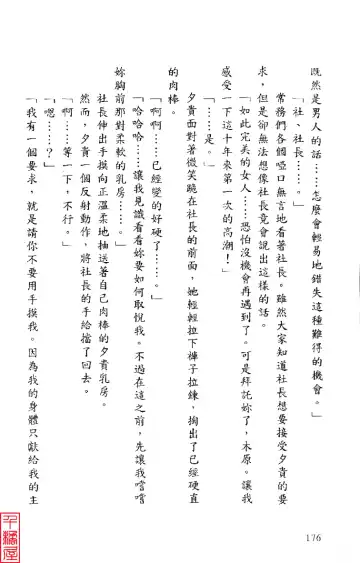 既然是男人的話……怎麼會輕易地錯失這種難得的機會。」
「社、社長……」
常務們各個啞口無言地看著社長。雖然大家知道社長想要接受夕貴的要
求，但是卻無法想像社長竟會說出這樣的話。
「如此完美的女人……恐怕沒機會再遇到了。可是拜託妳了，木原。讓我
感受一下這十年來第一次的高潮！」
「……是。」
夕貴面對著微笑跪在社長的前面，她輕輕拉下褲子拉鍊，掏出了已經硬直
的肉棒。
「啊啊……已經變的好硬了……。」
「哈哈哈……讓我見識看看妳要如何取悅我。不過在這之前，先讓我嚐嚐
妳胸前那對柔軟的乳房……」
社長伸出手摸向正溫柔地抽送著自己肉棒的夕貴乳房。
然而，夕貴一個反射動作，將社長的手給擋了回去。
「啊……等一下，不行。」
「嗯……？」
「我有一個要求，就是請你不要用手摸我。因為我的身體只獻給我的主
176
千獺屋